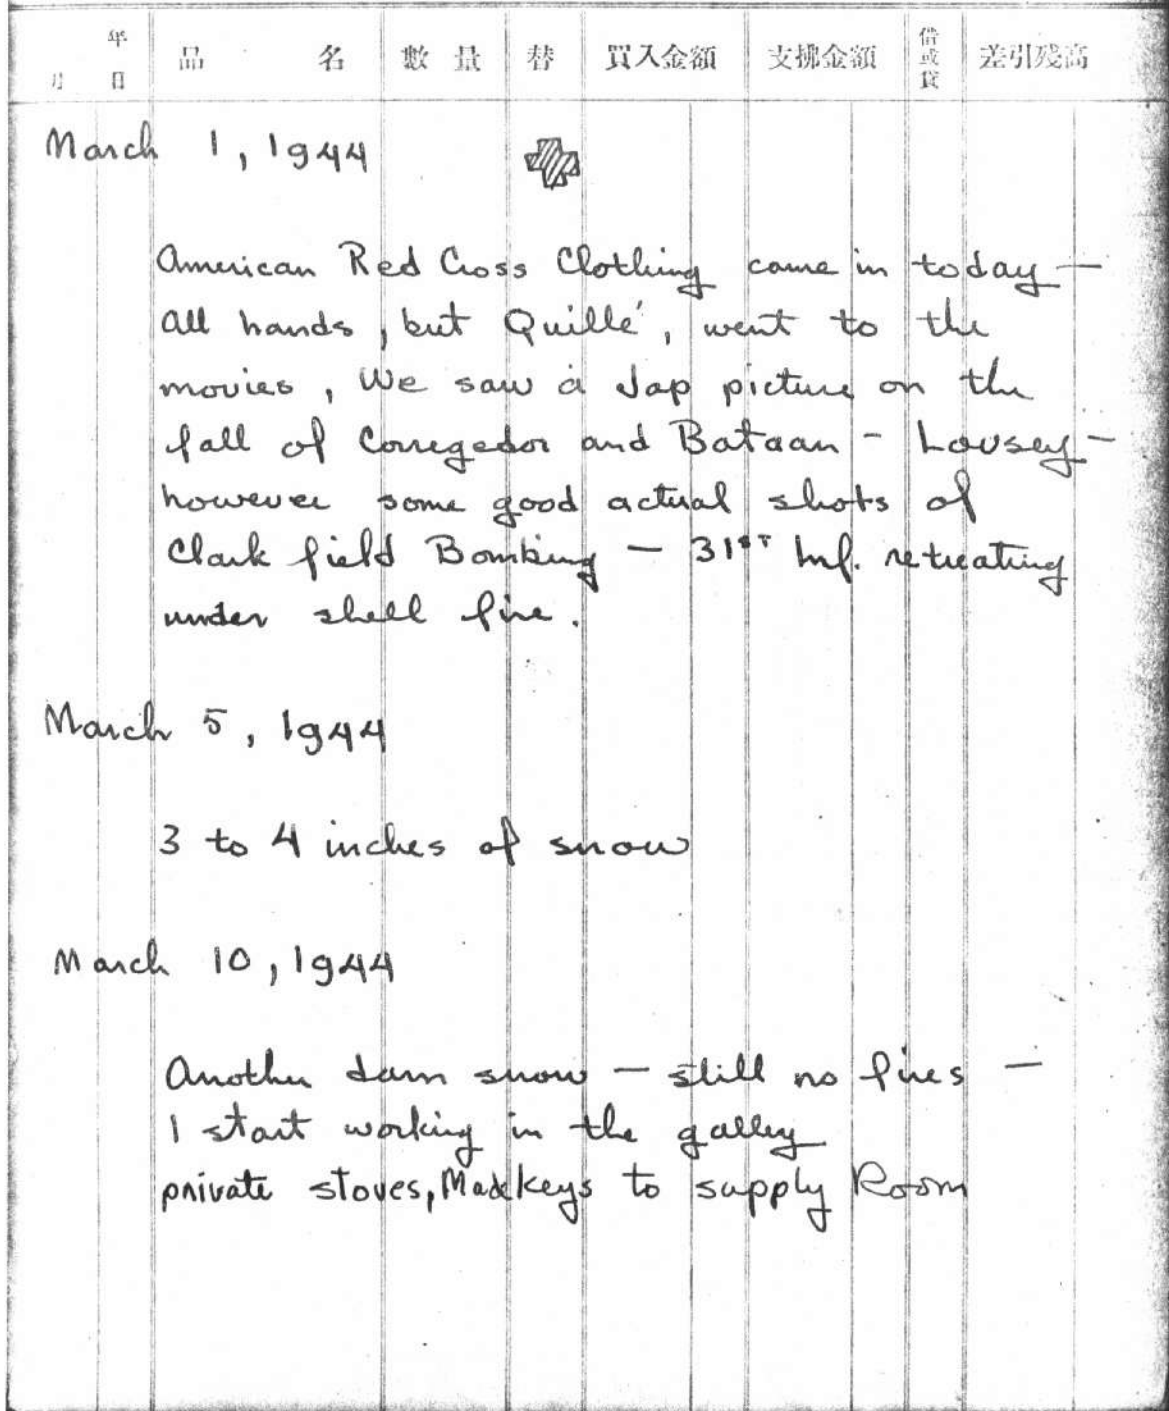 年
月 日 品 名 數 量 替 買入金額 支拂金額 借或貸 差引残高
March 1, 1944
American Red Cross Clothing came in today —
All hands, but Quillé, went to the
movies, We saw a Jap picture on the
fall of Corregedor and Bataan - Lousey -
however some good actual shots of
Clark field Bombing — 31ST Inf. retreating
under shell fire.
March 5, 1944
3 to 4 inches of snow
March 10, 1944
Another darn snow — still no fires —
I start working in the galley
private stoves, Made keys to supply Room